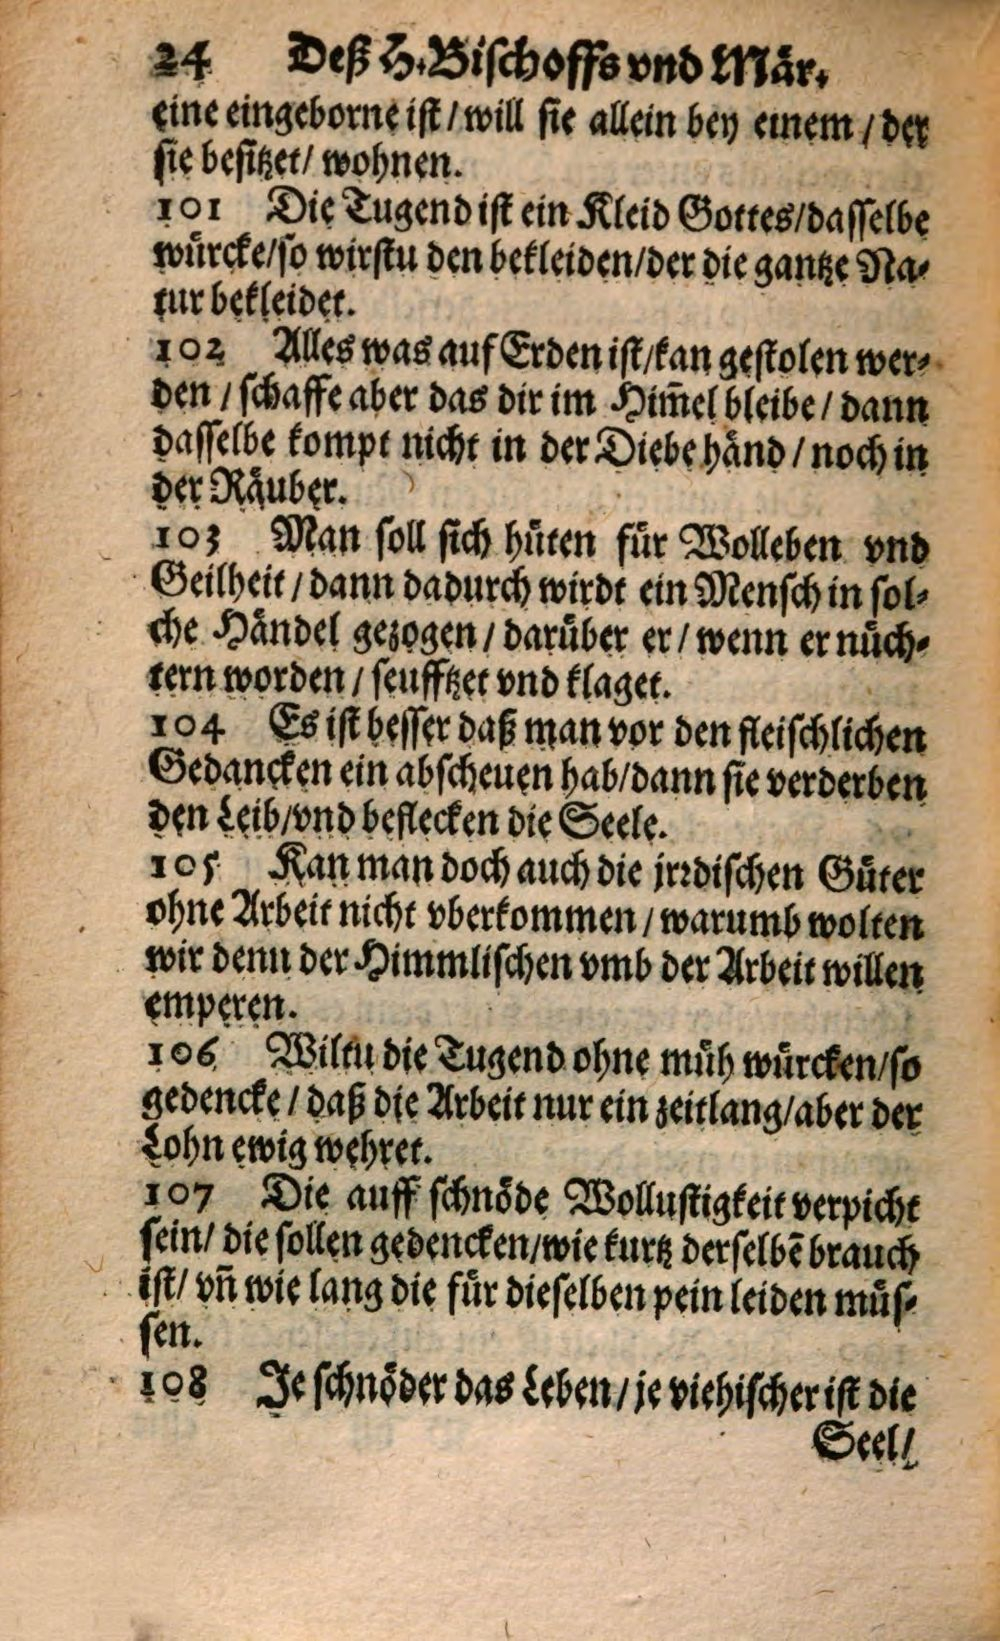 24 Deß H. Bischoffs vnd Mär.
eine eingeborne ist / will sie allein bey einem / der
sie besitzet / wohnen.
101 Die Tugend ist ein Kleid Gottes / dasselbe
würcke / so wirstu den bekleiden / der die gantze Na-
tur bekleidet.
102 Alles was auf Erden ist / kan gestolen wer-
den / schaffe aber das dir im Him̃el bleibe / dann
dasselbe kompt nicht in der Diebe händ / noch in
der Räuber.
103 Man soll sich hüten für Wolleben vnd
Geilheit / dann dadurch wirdt ein Mensch in sol-
che Händel gezogen / darüber er / wenn er nüch-
tern worden / seufftzet vnd klaget.
104 Es ist besser daß man vor den fleischlichen
Gedancken ein abscheuen hab / dann sie verderben
den Leib / vnd beflecken die Seele.
105 Kan man doch auch die jrrdischen Güter
ohne Arbeit nicht vberkommen / warumb wolten
wir denn der Himmlischen vmb der Arbeit willen
emperen.
106 Wiltu die Tugend ohne müh würcken / so
gedencke / daß die Arbeit nur ein zeitlang / aber der
Lohn ewig wehret.
107 Die auff schnöde Wollustigkeit verpicht
sein / die sollen gedencken / wie kurtz derselbẽ brauch
ist / vñ wie lang die für dieselben pein leiden müs-
sen.
108 Je schnöder das Leben / je viehischer ist die
Seel /